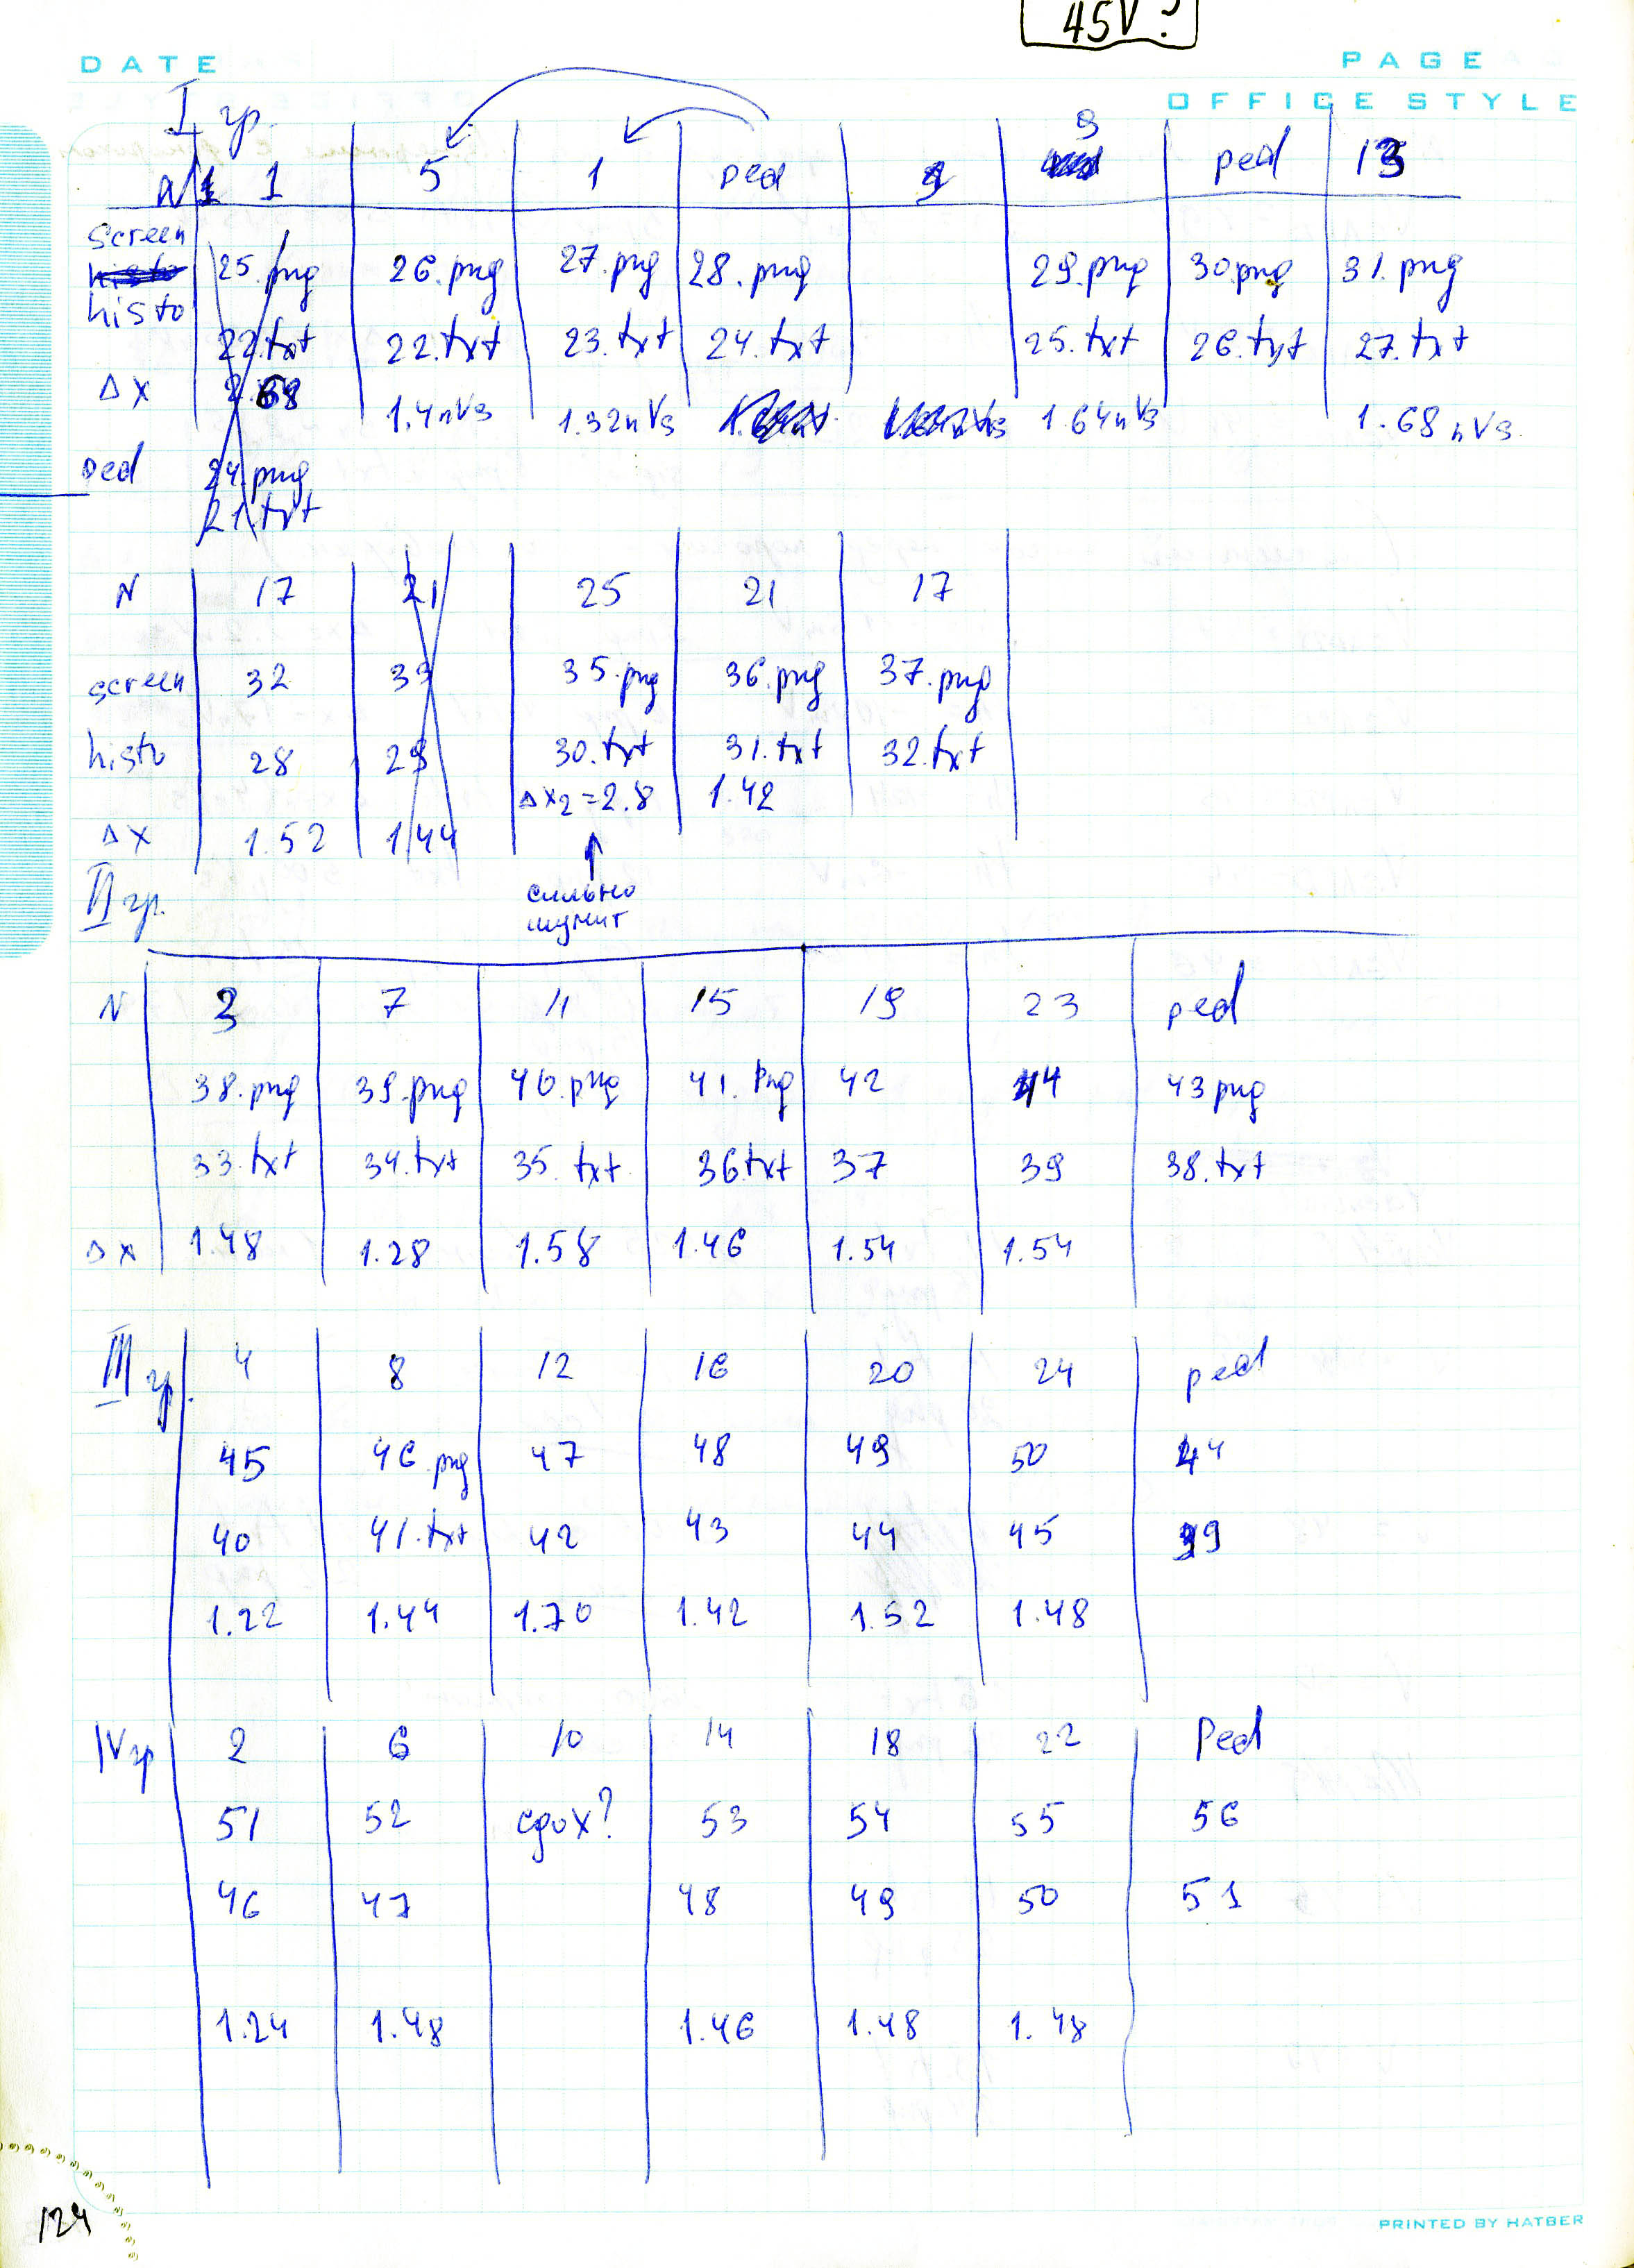 45V?
DATE
PAGE
OFFICE STYLE
I гр.
N 1 5 1 ped 9 ped 13
screen
25.png 26.png 27.png 28.png 29.png 30png 31.png
histo
22.txt 22.txt 23.txt 24.txt 25.txt 26.txt 27.txt
Δx 1.4nVs 1.32nVs 1.64nVs 1.68nVs
ped 24.png
21.txt
N 17 21 25 21 17
screen 32 33 35.png 36.png 37.png
histo 28 29 30.txt 31.txt 32.txt
Δx₂=2.8 1.42
Δx 1.52 1.44
II гр.
сильно
шумит
N 3 7 11 15 19 23 ped
38.png 39.png 40.png 41.png 42 44 43png
33.txt 34.txt 35.txt 36txt 37 39 38.txt
Δx 1.48 1.28 1.58 1.46 1.54 1.54
III гр. 4 8 12 16 20 24 ped
45 46.png 47 48 49 50 44
40 41.txt 42 43 44 45 39
1.22 1.44 1.70 1.42 1.52 1.48
IV гр 2 6 10 14 18 22 Ped
51 52 сдох? 53 54 55 56
46 47 48 49 50 51
1.24 1.48 1.46 1.48 1.48
124
PRINTED BY HATBER